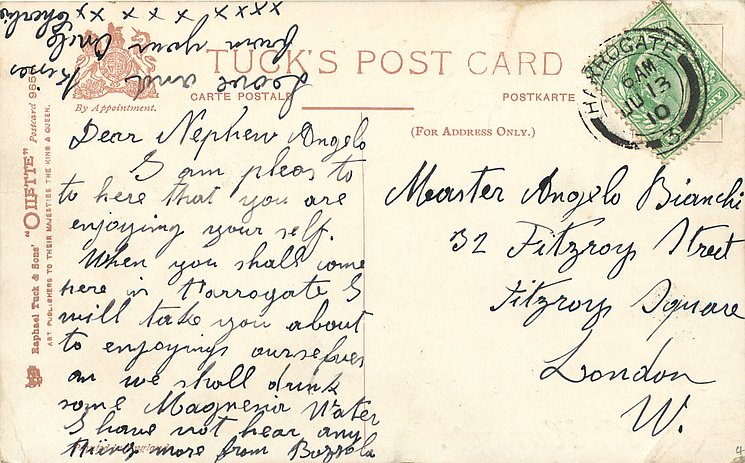 TUCK'S POST CARD
CARTE POSTALE
POSTKARTE
By Appointment.
(FOR ADDRESS ONLY.)
HARROGATE
6 AM
JU 13
10
3
Raphael Tuck & Sons' "OILETTE" Postcard 965
ART PUBLISHERS TO THEIR MAJESTIES THE KING & QUEEN.
Dear Nephew Angelo
I am pleas to
to here that you are
enjoying your self.
When you shall come
here in Harrogate I
will take you about
to enjoying ourselves
an we shall drink
some Magnesia Water
I have not hear any
things more from
Love and kisses
from your Uncle
x x x x x x x x x x
Master Angelo Bianchi
32 Fitzroy Street
Fitzroy Square
London
W.